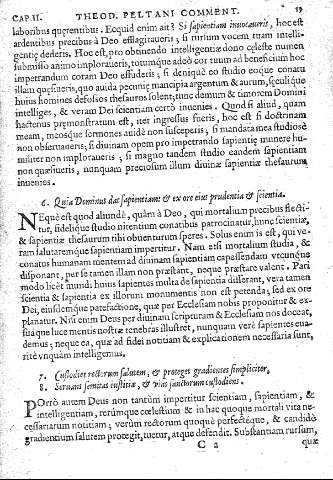 CAP. II. THEOD. PELTANI COMMENT. 19
laboribus quęrentibus. Ecquid enim ait? Si sapientiam inuocaueris, hoc est
ardentibus precibus à Deo efflagitaueris; si rursum vocem tuam intelli-
gentię dederis. Hoc est, pro obtinendo intelligentiæ dono cęleste numen
submisso animo imploraueris, totumque adeò cor tuum ad beneficium hoc
impetrandum coram Deo effuderis; si deniquè eo studio eoque conatu
illam quęsiueris, quo auida pecunię mancipia argentum & aurum, seculique
huius homines defossos thesauros solent; tunc demùm & timorem Domini
intelliges, & veram Dei scientiam certò inuenies. Quod si aliud, quàm
hactenus pręmonstratum est, iter ingressus fueris, hoc est si doctrinam
meam, meosque sermones auidè non susceperis; si mandata mea studiosè
non obseruaueris; si diuinam opem pro impetrando sapientię munere hu-
militer non imploraueris; si magno tandem studio eandem sapientiam
non quæsiueris, nunquam preciosum illum diuinæ sapientiæ thesaurum
inuenies.
6. Quia Dominus dat sapientiam: & ex ore eius prudentia & scientia.
NEque est quod aliundè, quàm à Deo, qui mortalium precibus flecti-
tur, fidelique studio nitentium conatibus patrocinatur, hunc scientiæ,
& sapientiæ thesaurum tibi obuenturum speres. Solus enim is est, qui ve-
ram salutaremque sapientiam impertitur. Nam etsi mortalium studia, &
conatus humanam mentem ad diuinam sapientiam capessendam vtcunque
disponant, per se tamen illam non præstant, neque præstare valent. Pari
modo licèt mundi huius sapientes multa de sapientia differant, vera tamen
scientia & sapientia ex illorum monumentis non est petenda; sed ex ore
Dei, eiusdemque patefactione, quæ per Ecclesiam nobis proponitur & ex-
planatur. Nisi enim Deus per diuinam scripturam & Ecclesiam nos doceat,
suaque luce mentis nostræ tenebras illustret, nunquam verè sapientes eua-
demus; neque ea, quæ ad fidei notitiam & explicationem necessaria sunt,
ritè vnquàm intelligemus.
7. Custodiet rectorum salutem, & proteget gradientes simpliciter.
8. Seruans semitas iustitiæ, & vias sanctorum custodiens.
POrrò autem Deus non tantùm impertitur scientiam, sapientiam, &
intelligentiam, rerùmque cœlestium & in hac quoque mortali vita ne-
cessariarum notitiam; verùm rectorum quoquè perfectéque, & candidè
gradientium salutem protegit, tuetur, atque defendit. Substantiam rursum,
C 2 quæ